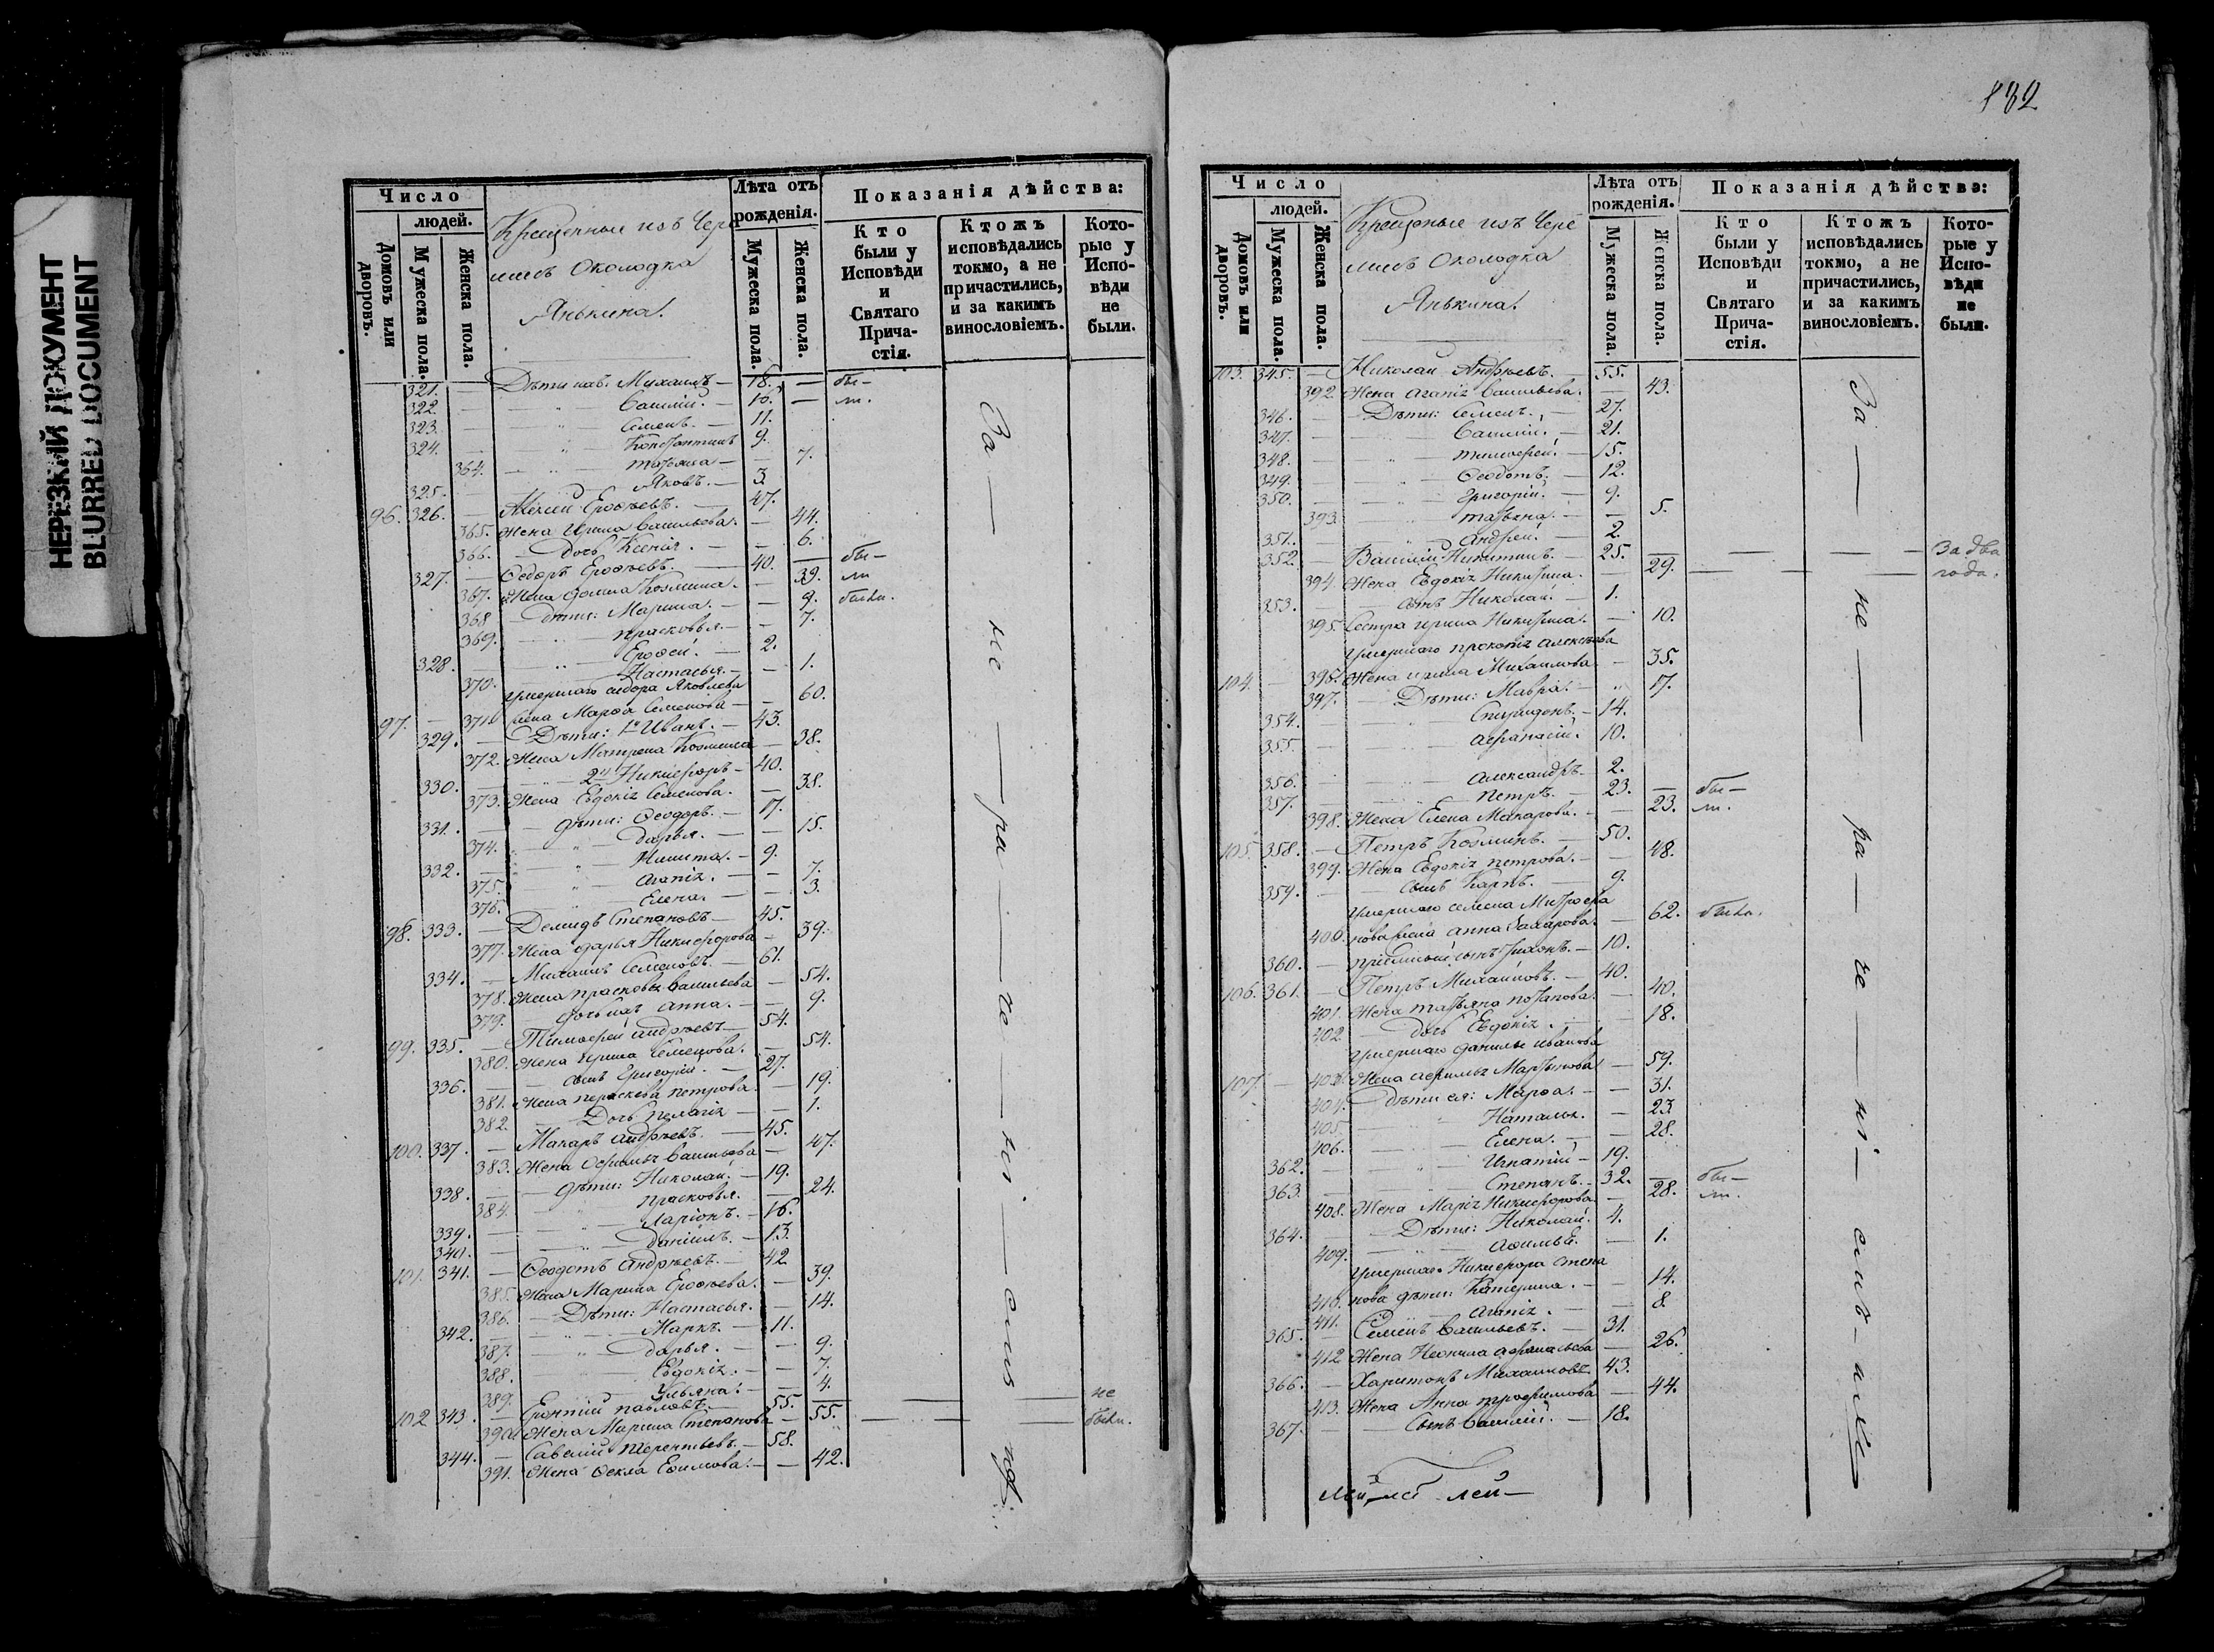 НЕРЕЗКИЙ ДОКУМЕНТ
BLURRED DOCUMENT
Число
людей.
Домовъ или дворовъ.
Мужеска пола.
Женска пола.
Крещенные изъ Чере
мисъ Околодка
Янькина.
Лѣта отъ рожденія.
Мужеска пола.
Женска пола.
Показанія дѣйства:
Кто были у Исповѣди и Святаго Прича-стія.
Ктожъ исповѣдались токмо, а не причастились, и за какимъ винословіемъ.
Кото-рые у Испо-вѣди не были.
321. — Дѣти ихъ: Михаилъ — 18. — бы-
322. — " — Василій. — 16. — ли.
323. — " — Семенъ. — 11.
324. — " — Константинъ 9.
364. — " — Татьяна — — 7.
325. — Яковъ. — 3.
96. 326. — Алексій Ерофѣевъ. — 47.
365. Жена Ирина Васильева. — 44.
366. — дочь Ксенія. — — 6.
327. — Ѳедоръ Ерофѣевъ. — 40. — бы-
367. Жена Домна Козмина. — 39. ли
368 — дѣти: Марина. — — 9. была.
369. — " — Прасковья. — — 7.
328. — " — Ерофей. — 2.
370. — Настасья. — — 1.
умершаго Сидора Яковлева
97. — 371. жена Марѳа Семенова — — 60.
329. — Дѣти: 1й Иванъ. — 43.
372. Жена Матрена Козмина — 38.
330. — " — 2й Никифоръ — 40.
373. Жена Евдокія Семенова. — 38.
331. — дѣти: Ѳеодоръ. — 17.
374. — " — Дарья. — — 15.
332. — " — Никита. — 9.
375. — " — Агапія. — — 7.
376. — " — Елена. — — 3.
98. 333. — Демидъ Степановъ — 45.
377. Жена Дарья Никифорова — 39.
334. — Михаилъ Семеновъ. — 61.
378. Жена Прасковья Васильева — 54.
379. — дочь ихъ Анна. — — 9.
99. 335. — Тимофей Андреевъ — 54.
380. Жена Ирина Семенова. — 54.
336. — сынъ Григорій. — 27.
381. Жена Параскева Петрова. — 19.
382. — Дочь Пелагія — — 1.
100. 337. — Макаръ Андреевъ. — 45.
383. Жена Васильева — 47.
338. — дѣти: Николай. — 19.
384. — Прасковья. — 24.
339. — " — Ларіонъ. — 16.
340. — " — Даніилъ. — 13.
101. 341. — Ѳеодотъ Андреевъ. — 42
385. Жена Марина Ерофѣева. — 39.
386. — Дѣти: Настасья. — 14.
342. — " — Маркъ. — 11.
387. — " — Дарья. — — 9.
388. — " — Евдокія. — — 7.
389. — Ульяна. — — 4.
102 343. — Павловъ. — 55. — не
390. Жена Марина Степанова — 55. — были.
344. — Савелій Терентьевъ. — 58.
391. Жена Ѳекла Ефимова. — — 42.
За — не — ра — че — ні —
132
Число
людей.
Домовъ или дворовъ.
Мужеска пола.
Женска пола.
Крещеные изъ Чере
мисъ Околодка
Янькина.
Лѣта отъ рожденія.
Мужеска пола.
Женска пола.
Показанія дѣйства:
Кто были у Исповѣди и Святаго Прича-стія.
Ктожъ исповѣдались токмо, а не причастились, и за какимъ винословіемъ.
Кото-рые у Испо-вѣди не были.
103. 345. — Николай Андреевъ. — 55.
392. Жена Агапія Васильева. — 43.
346. — Дѣти: Семенъ. — 27.
347. — Василій. — 21.
348. — " — Тимофей. — 15.
349. — " — Ѳеодотъ. — 12.
350. — " — Григорій. — 9.
393. — " Татьяна. — — 5.
351. — " — Андрей. — 2.
352. — Василій Никитинъ. — 25. — За два
394. Жена Евдокія Никитина. — 29. — года.
353. — сынъ Николай. — 1.
395. Сестра Ирина Никитина. — 10.
умершаго Прокопія Алексѣева
104. — 396. Жена Ирина Михаилова — 35.
397. — Дѣти: Мавра. — " 17.
354. — Спиридонъ. — 14.
355. — Афанасій. 10.
356. — Александръ. — 2.
357. — Петръ. — 23. — бы-
398. Жена Елена Макарова. — 23. ли.
105. 358. — Петръ Козминъ. — 50.
399. Жена Евдокія Петрова. — 48.
359. — сынъ Карпъ. — 9.
умершаго Семена Митрофа
400. нова жена Анна Захарова. — 62. была.
360. — пріемный сынъ — 10.
106. 361. — Петръ Михаиловъ. — 40.
401. Жена Татьяна Потапова. — 40.
402 — дочь Евдокія. — — 18.
умершаго Данилы Иванова
107. — 403. Жена Мартынова — 59.
404. Дѣти ея: Марѳа. — — 31.
405. — Наталья. — 23
406. — Елена. — — 28.
362. — " — Игнатій — 19.
363. — " — Степанъ. — 32. — бы-
408. Жена Марія Никифорова — 28. ли.
364. — Дѣти: Николай. 4.
409. — 1.
умершаго Никифора Степа
410. нова дѣти: Катерина. — — 14.
411. — Агапія. — — 8.
365. — Семенъ Васильевъ. — 31.
412 Жена Неонила Афанасьева — 26.
366. — Харитонъ Михаиловъ 43.
413. Жена Анна Трофимова — 44.
367. — Сынъ Василій. — 18.
За — не — ра — че — ні —